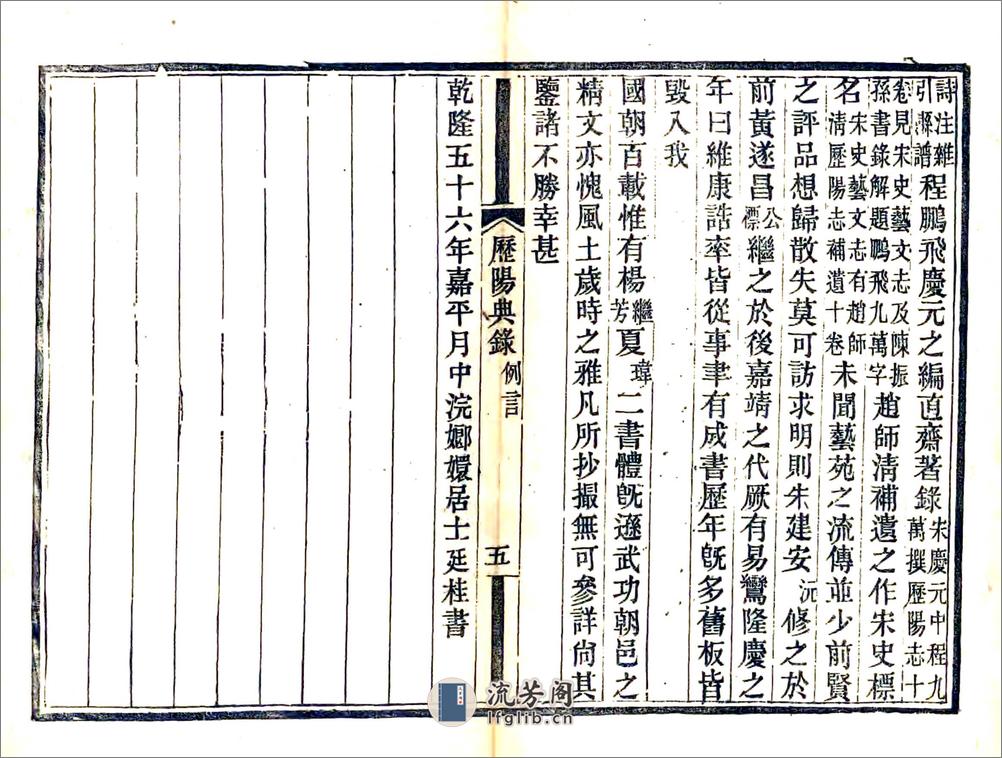 詩注雜引縣譜程鵬飛慶元之編直齋著錄宋慶元中程九萬撰歷陽志十
卷見宋史藝文志及陳振孫書錄解題鵬飛九萬字趙師清補遺之作宋史標
名宋史藝文志有趙師清歷陽志補遺十卷未聞藝苑之流傳並少前賢
之評品想歸散失莫可訪求明則朱建安沅修之於
前黃遂昌公標繼之於後嘉靖之代厥有易鸞隆慶之
年曰維康誥率皆從事聿有成書歷年旣多舊板皆
毀入我
國朝百載惟有楊繼芳夏瑋二書體旣遜武功朝邑之
精文亦愧風土歲時之雅凡所抄撮無可參詳尙其
鑒諸不勝幸甚
歷陽典錄 例言 五
乾隆五十六年嘉平月中浣嫏嬛居士廷桂書
流芳阁
lfglib.cn